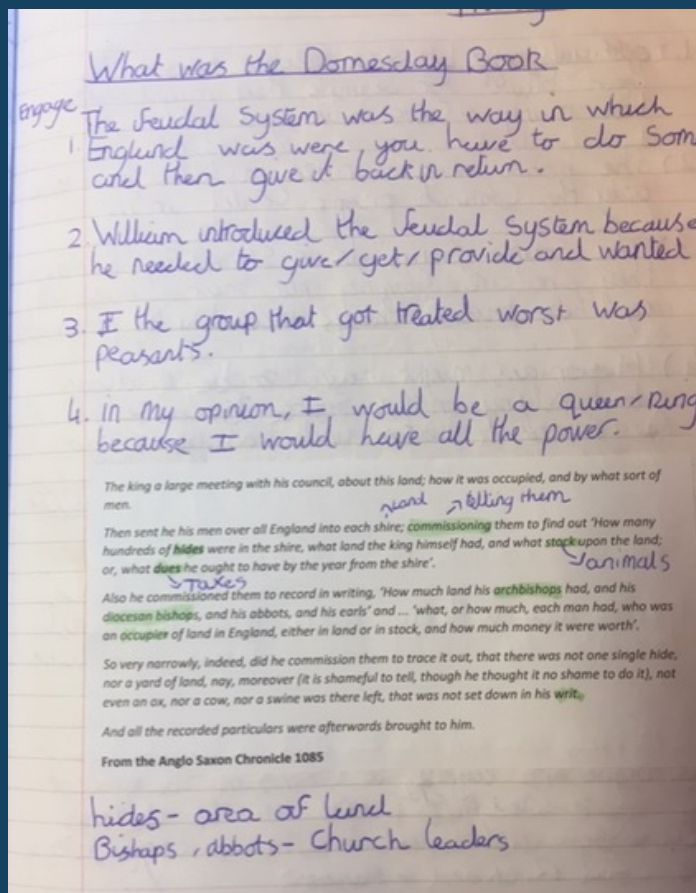 What was the Domesday Book
Engage
The feudal System was the way in which
1. England was were, you have to do Som
and then give it back in return.
2. William introduced the feudal System because
he needed to give/get/provide and wanted
3. I the group that got treated worst was
peasants.
4. in my opinion, I would be a queen/king
because I would have all the power.
The king a large meeting with his council, about this land; how it was occupied, and by what sort of
men.
land telling them
Then sent he his men over all England into each shire; commissioning them to find out 'How many
hundreds of hides were in the shire, what land the king himself had, and what stock upon the land;
or, what dues he ought to have by the year from the shire'.
animals
Taxes
Also he commissioned them to record in writing, 'How much land his archbishops had, and his
diocesan bishops, and his abbots, and his earls' and ... 'what, or how much, each man had, who was
an occupier of land in England, either in land or in stock, and how much money it were worth'.
So very narrowly, indeed, did he commission them to trace it out, that there was not one single hide,
nor a yard of land, nay, moreover (it is shameful to tell, though he thought it no shame to do it), not
even an ox, nor a cow, nor a swine was there left, that was not set down in his writ.
And all the recorded particulars were afterwards brought to him.
From the Anglo Saxon Chronicle 1085
hides - area of land
Bishaps, abbots - Church leaders